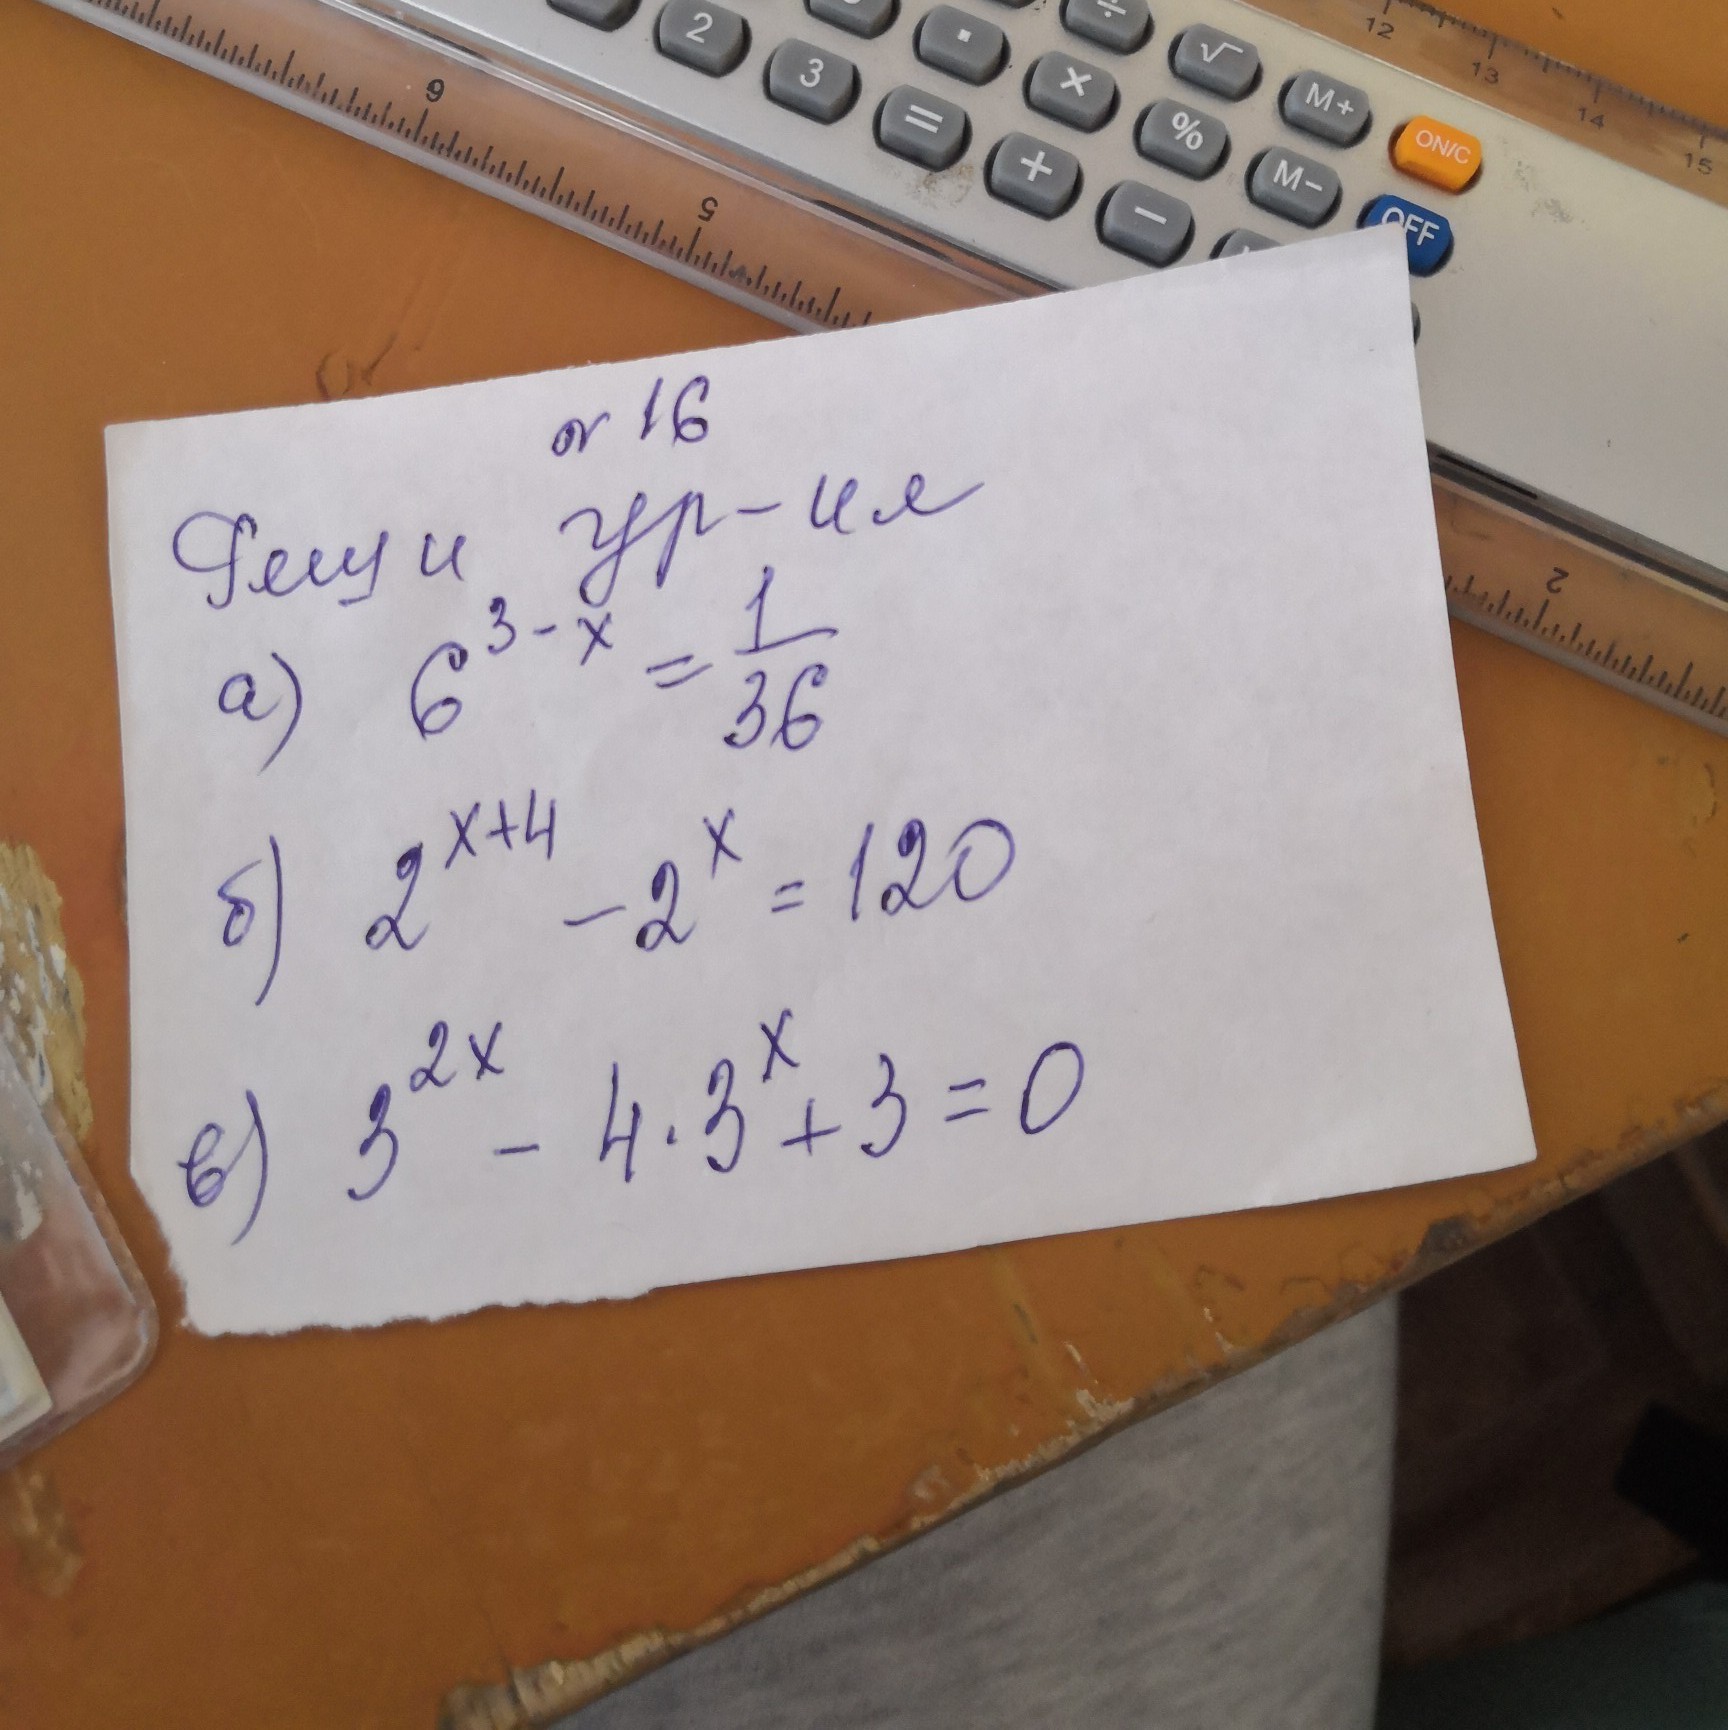 2 . ÷ √ M+ ON/C
3 × % M- OFF
= + −
12 13 14 15
6 5
2
№ 16
Реши ур-ия
а) 6^{3-x} = \frac{1}{36}
б) 2^{x+4} - 2^x = 120
в) 3^{2x} - 4·3^x + 3 = 0